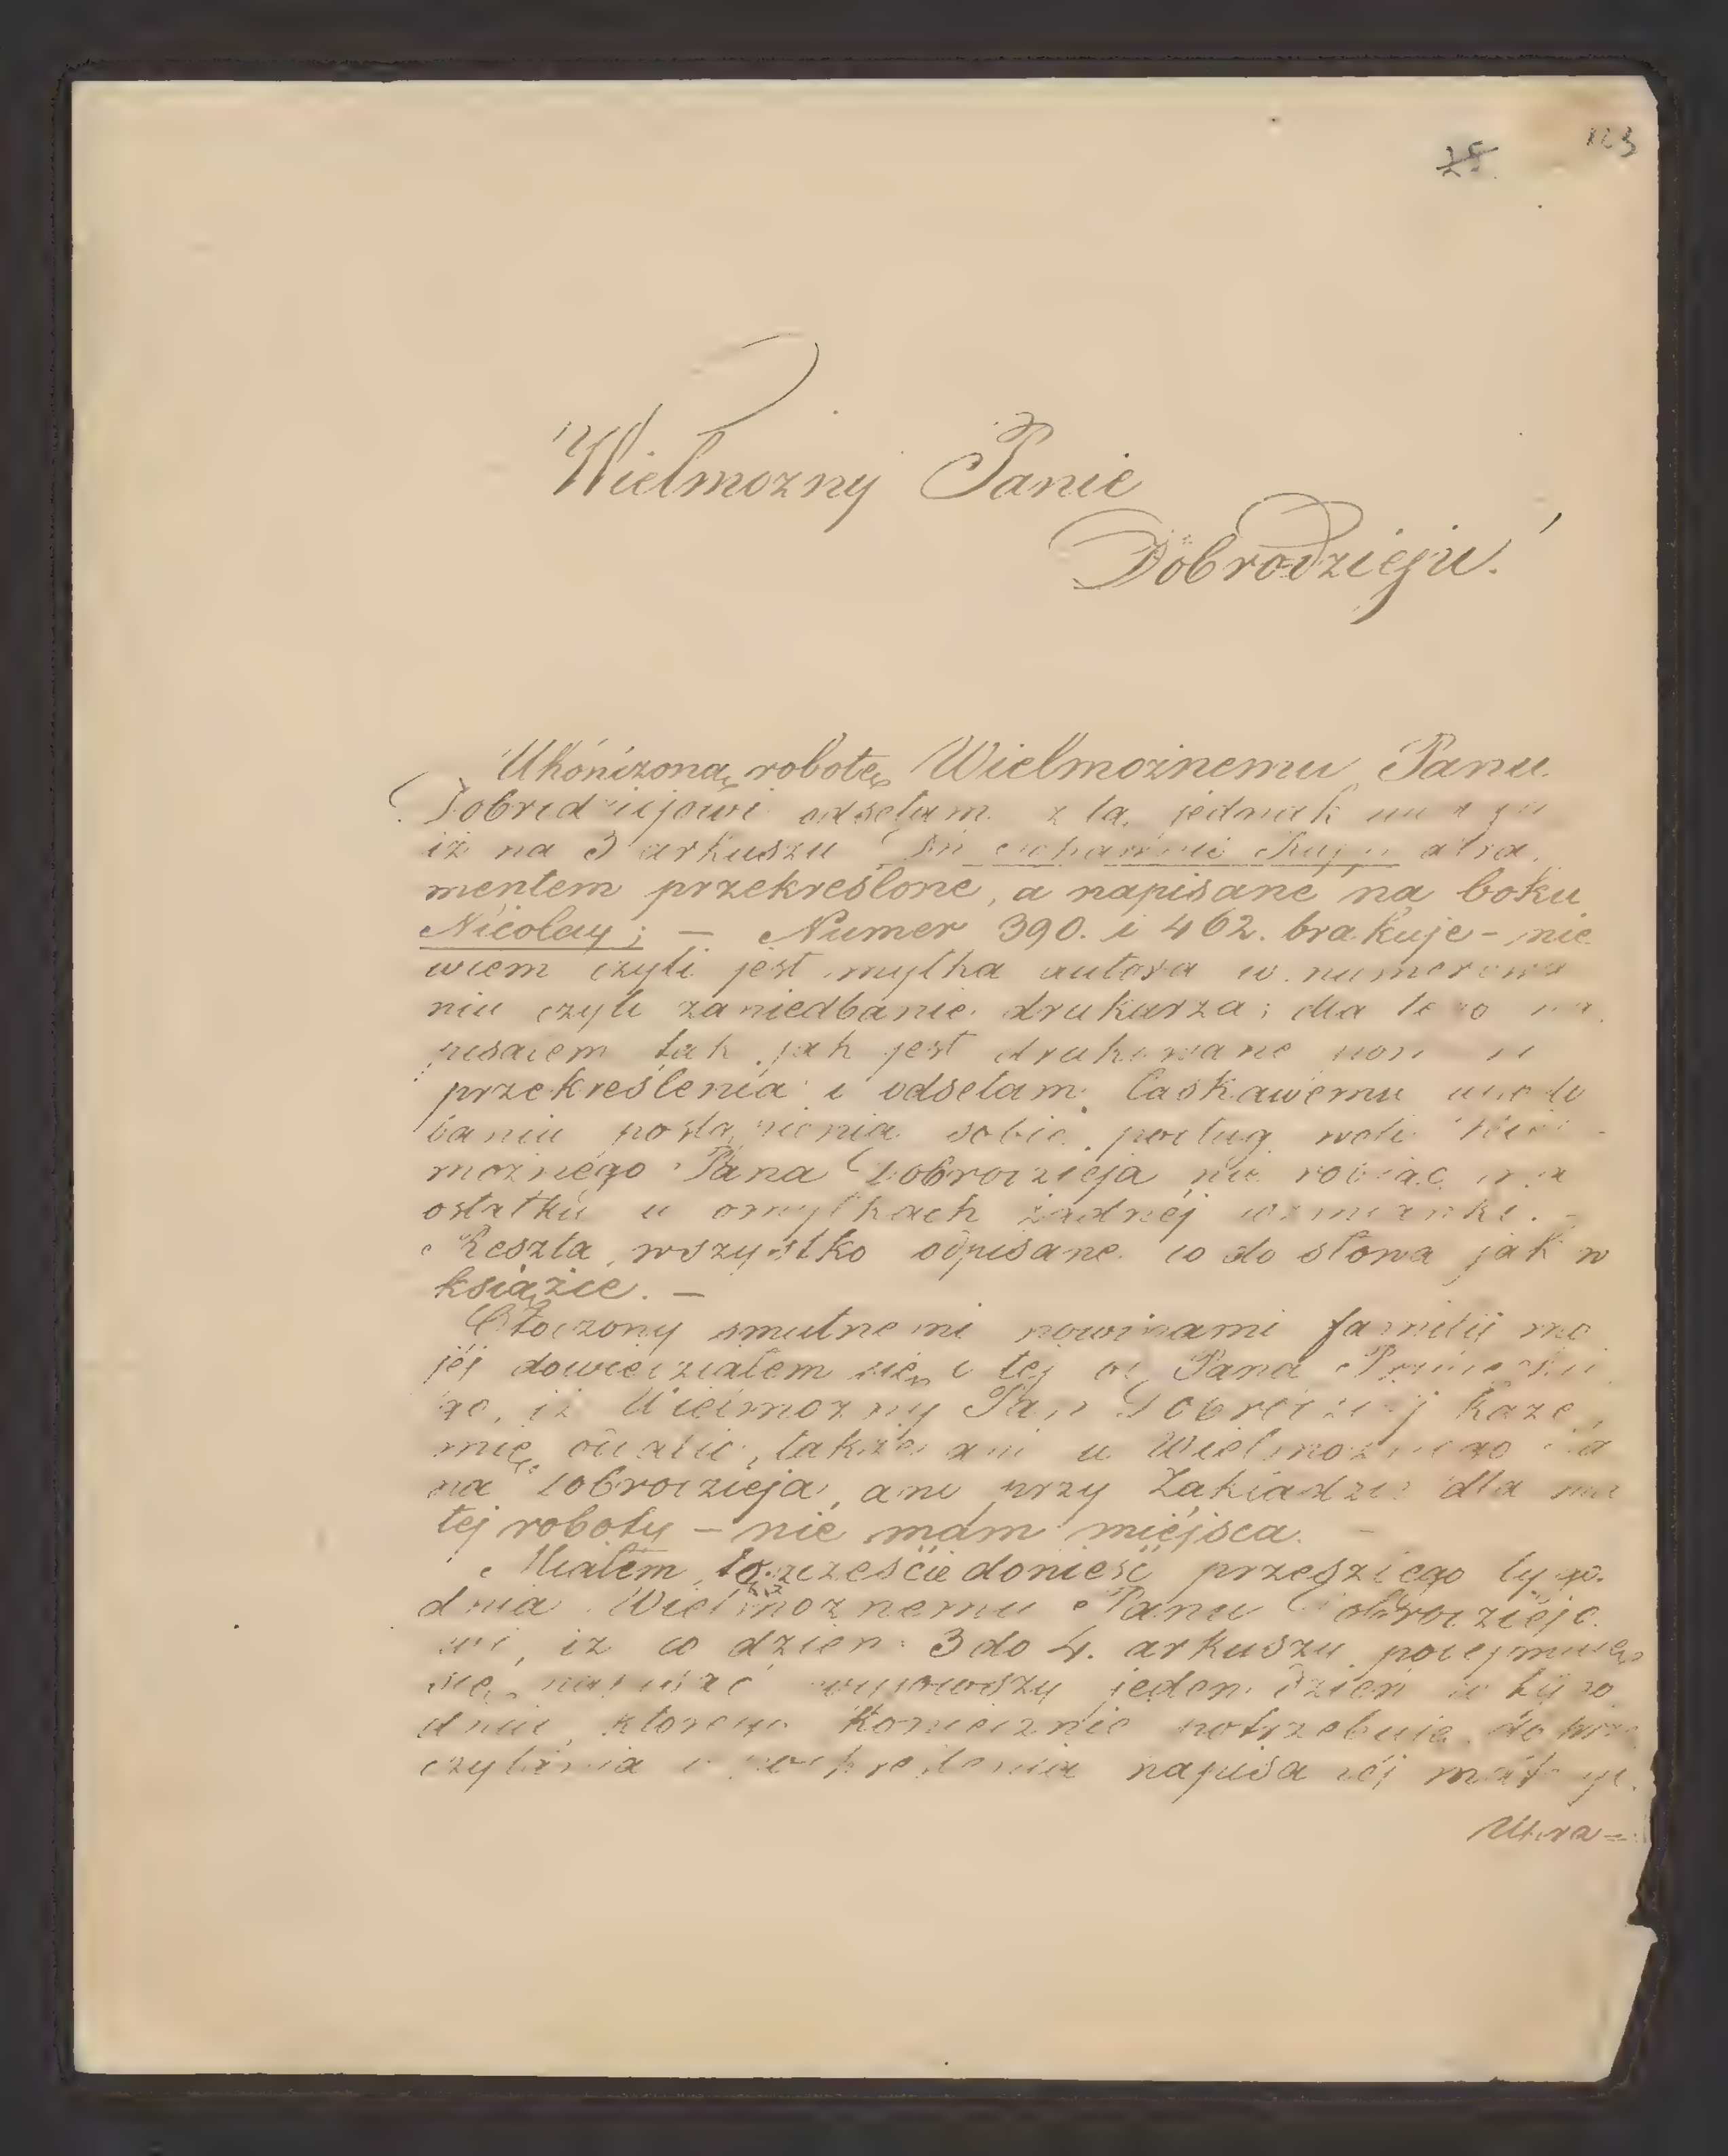 123
28
Wielmożny Panie
Dobrodzieju!
Ukończoną robotę Wielmożnemu Panu
Dobrodziejowi odsełam z tą jednak
iż na 3 arkuszu atra
mentem przekreślone, a napisane na boku
Nicolay; – Numer 390. i 462. brakuje – nie
wiem czyli jest myłka autora w numerowa
niu czyli zaniedbanie drukarza; dla tego na
pisałem tak jak jest drukowane
przekreślenia i odsełam łaskawemu upodo
baniu postąpienia sobie podług woli Wiel
możnego Pana Dobrodzieja nie robiąc na
ostatku w omyłkach żadnéj wzmianki. –
Reszta wszystko odpisane co do słowa jak w
książce. –
Otoczony smutnemi nowinami familij mo
jéj dowiedziałem się i téj od Pana
go, iż Wielmożny Pan Dobrodziéj każe
mię oddalić, także ani u Wielmożnego Pa
na Dobrodzieja, ani przy Zakładzie dla ma
łéj roboty – nie mam miéjsca. –
Miałem to szczeście donieść przeszłego tygo
dnia Wielmożnemu Panu Dobrodziéjo
wi, iż co dzień 3 do 4. arkuszy podejmuję
się napisać wyjąwszy jeden dzień w tygo
dniu, którego koniecznie potrzebuję do prze
czytania i napisanéj